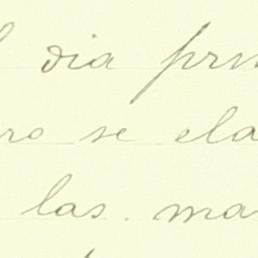 l dia prim
ro se ela
las. ma